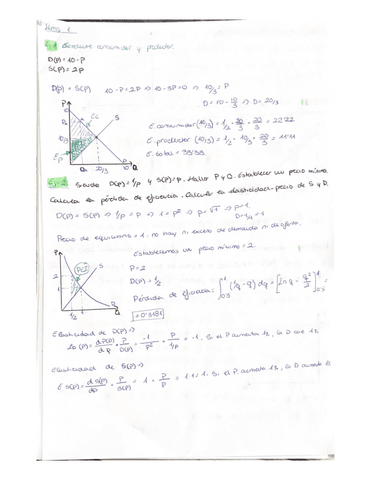 Tema 1
Ej-1 Excedente consumidor y productor.
D(p) = 10 - P
S(p) = 2p
D(p) = S(p) → 10 - P = 2P → 10 - 3P = 0 → 10/3 = P
D = 10 - 10/3 → D = 20/3
P
10
Ec
S
10/3
Ep
20/3
10 Q
E. consumidor (10/3) = 1/2 · 20/3 · 20/3 = 22'22
E. productor (10/3) = 1/2 · 10/3 · 20/3 = 11'11
E. total = 33'33
Ej-2 Siendo D(p) = 1/p y S(p) = p. Hallar P y Q. Establecer un precio mínimo.
Calcular en pérdida de eficiencia. Calcular la elasticidad-precio de S y D.
D(p) = S(p) → 1/p = P → 1 = p² → p = √1 → p = 1
D = 1/1 = 1
Precio de equilibrio = 1. no hay ni exceso de demanda ni de oferta.
Establecemos un precio mínimo = 2.
P
2
1
S
1/2
1
Q
P = 2
D(p) = 1/2
Pérdida de eficiencia: ∫ (1/q - q) dq = [ln q - q²/2]
= 0'3181
Elasticidad de D(p) →
· P/D(p) = -1/p² · P/1/p = -1. Si el P aumenta 1%, la D cae 1%.
Elasticidad de S(p) →
E S(p) = dS(p)/dp · P/S(p) = 1 · P/P = 1. Si el P aumenta 1%, la